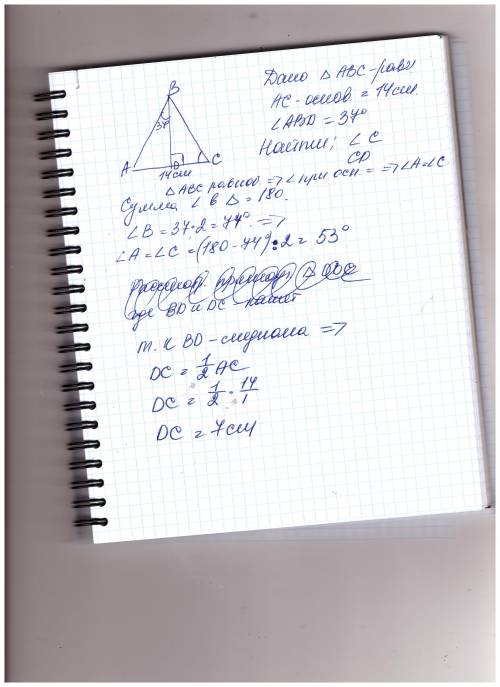 Дано △ ABC-равн
AC-основ. = 14 см.
∠ABD = 37°
Найти: ∠C
CD
B
37°
A
D
C
14 см
△ ABC равноб. => ∠ при осн. = => ∠A=∠C
Сумма ∠ в △ = 180.
∠B = 37·2 = 74° =>
∠A=∠C = (180-74):2 = 53°
где BD и DC - катет
т.к BD - медиана =>
DC = 1/2 AC
DC = 1/2 · 14/1
DC = 7 см